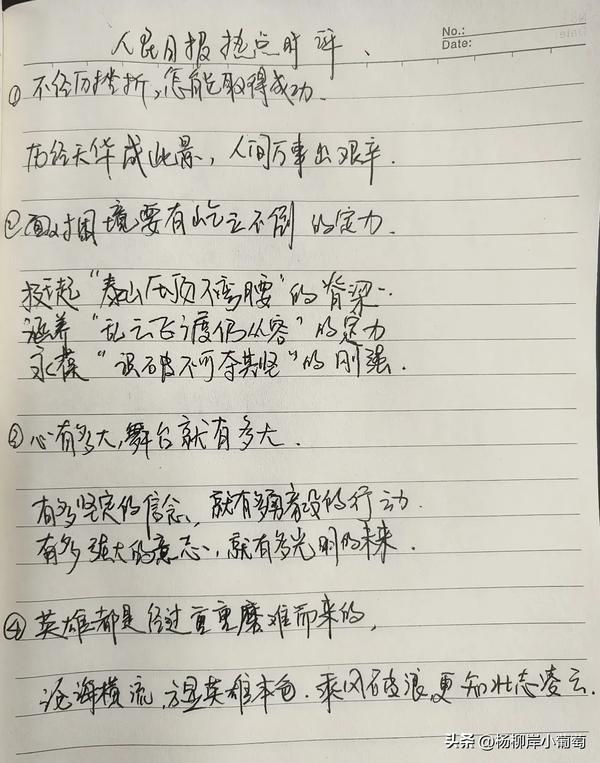 No.:
Date:
人民日报热点时评、
① 不经历挫折,怎能取得成功.
历经天华成此景,人间万事出艰辛.
② 面对困境,要有屹立不倒的定力.
挺起“泰山压顶不弯腰”的脊梁.
涵养“乱云飞渡仍从容”的定力
永葆“识破不可夺其坚”的刚强.
③ 心有多大,舞台就有多大.
有多坚定的信念,就有多勇毅的行动.
有多强大的意志,就有多光明的未来.
④ 英雄都是经过重重磨难而来的,
沧海横流,方显英雄本色.乘风破浪,更知壮志凌云.
头条 @杨柳岸小葡萄